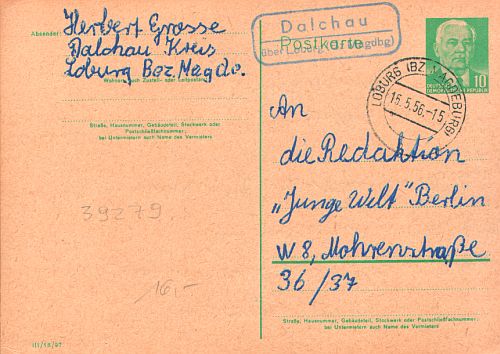 Absender:
Herbert Grosse
Dalchau Kreis
Loburg Bez. Magdb.
Wohnort, auch Zustell- oder Leitpostamt
Straße, Hausnummer, Gebäudeteil, Stockwerk oder
Postschließfachnummer;
bei Untermietern auch Name des Vermieters
39279
16,-
III/18/97
Dalchau
über Loburg (Bz. Magdbg)
Postkarte
DEUTSCHE
DEMOKRATISCHE REPUBLIK
10
LOBURG (BZ. MAGDEBURG)
16.5.56.-15
An
die Redaktion
„Junge Welt" Berlin
W 8, Mohrenstraße
36/37
Straße, Hausnummer, Gebäudeteil, Stockwerk oder Postschließfachnummer;
bei Untermietern auch Name des Vermieters